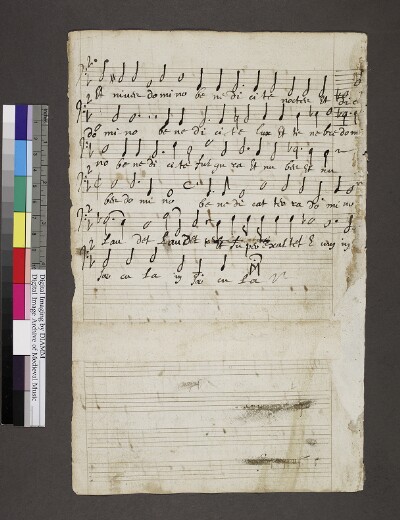 Et nives domino be ne di ci te noctes Et die
do mi no be ne di ci te lux Et te ne bre dom
no be ne di ci te ful gu ra Et nu bes
do mi no be ne di cat ter ra do mi no
Lau det Lau det Et Su per exaltet E
cu la in cu la
Digital Imaging by DIAMM
Digital Image Archive of Medieval Music